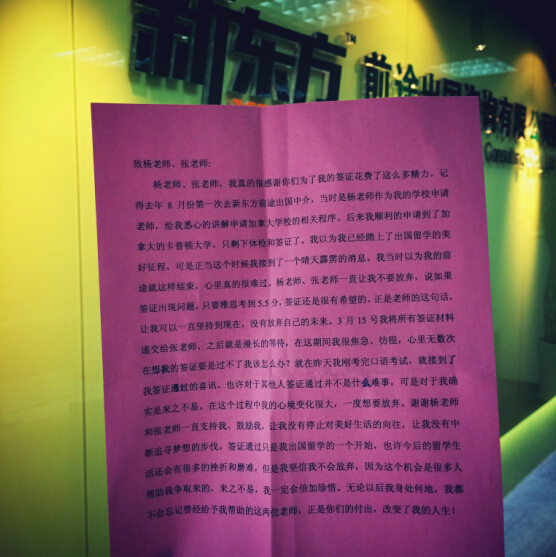 新东方™
前途出国咨询有限公司
Consulting
致杨老师、张老师:
杨老师、张老师，我真的很感谢你们为了我的签证花费了这么多精力。记
得去年 8 月份第一次去新东方前途出国中介，当时是杨老师作为我的学校申请
老师，给我悉心的讲解申请加拿大学校的相关程序，后来我顺利的申请到了加
拿大的卡普顿大学，只剩下体检和签证了，我以为我已经踏上了出国留学的美
好征程，可是正当这个时候我接到了一个晴天霹雳的消息。我当时以为我的前
途就这样结束，心里真的很难过。杨老师、张老师一直让我不要放弃，说如果
签证出现问题，只要雅思考到 5.5 分，签证还是很有希望的。正是老师的这句话，
让我可以一直坚持到现在，没有放弃自己的未来。3 月 15 号我将所有签证材料
递交给张老师，之后就是漫长的等待，在这期间我很焦急、彷徨，心里无数次
在想我的签证要是过不了我该怎么办？就在昨天我刚考完口语考试，就接到了
我签证通过的喜讯，也许对于其他人签证通过并不是什么难事，可是对于我确
实是来之不易，在这个过程中我的心境变化很大，一度想要放弃。谢谢杨老师
和张老师一直支持我、鼓励我，让我没有停止对美好生活的向往，让我没有中
断追寻梦想的步伐。签证通过只是我出国留学的一个开始，也许今后的留学生
活还会有很多的挫折和磨难，但是我坚信我不会放弃，因为这个机会是很多人
帮助我争取来的，来之不易，我一定会倍加珍惜。无论以后我身处何地，我都
不会忘记曾经给予我帮助的这两位老师，正是你们的付出，改变了我的人生！